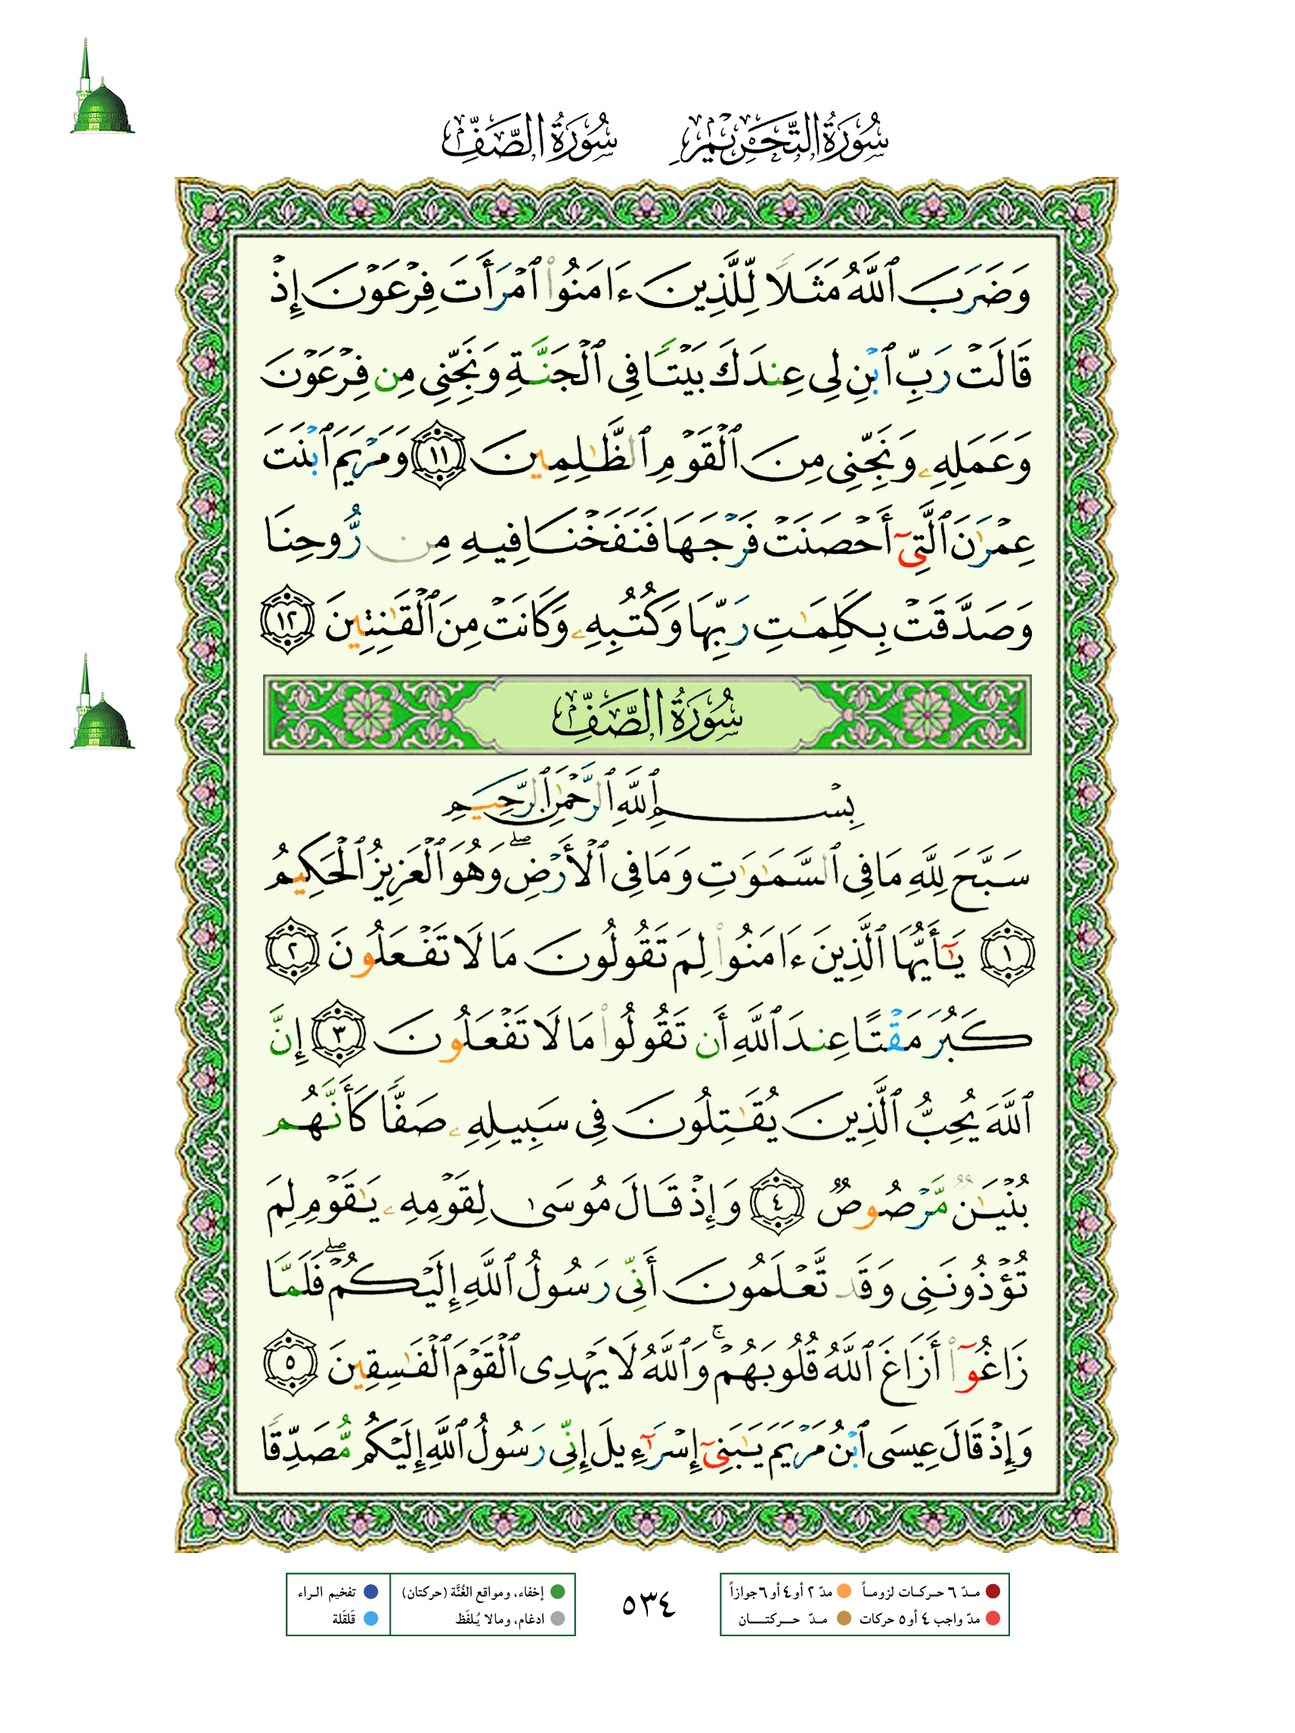 سُورَةُ التَّحْرِيمِ سُورَةُ الصَّفِّ
وَضَرَبَ ٱللَّهُ مَثَلًا لِّلَّذِينَ ءَامَنُوا۟ ٱمْرَأَتَ فِرْعَوْنَ إِذْ
قَالَتْ رَبِّ ٱبْنِ لِى عِندَكَ بَيْتًا فِى ٱلْجَنَّةِ وَنَجِّنِى مِن فِرْعَوْنَ
وَعَمَلِهِۦ وَنَجِّنِى مِنَ ٱلْقَوْمِ ٱلظَّٰلِمِينَ ١١ وَمَرْيَمَ ٱبْنَتَ
عِمْرَٰنَ ٱلَّتِىٓ أَحْصَنَتْ فَرْجَهَا فَنَفَخْنَا فِيهِ مِن رُّوحِنَا
وَصَدَّقَتْ بِكَلِمَٰتِ رَبِّهَا وَكُتُبِهِۦ وَكَانَتْ مِنَ ٱلْقَٰنِتِينَ ١٢
سُورَةُ الصَّفِّ
بِسْمِ ٱللَّهِ ٱلرَّحْمَٰنِ ٱلرَّحِيمِ
سَبَّحَ لِلَّهِ مَا فِى ٱلسَّمَٰوَٰتِ وَمَا فِى ٱلْأَرْضِ ۖ وَهُوَ ٱلْعَزِيزُ ٱلْحَكِيمُ
١ يَٰٓأَيُّهَا ٱلَّذِينَ ءَامَنُوا۟ لِمَ تَقُولُونَ مَا لَا تَفْعَلُونَ ٢
كَبُرَ مَقْتًا عِندَ ٱللَّهِ أَن تَقُولُوا۟ مَا لَا تَفْعَلُونَ ٣ إِنَّ
ٱللَّهَ يُحِبُّ ٱلَّذِينَ يُقَٰتِلُونَ فِى سَبِيلِهِۦ صَفًّا كَأَنَّهُم
بُنْيَٰنٌ مَّرْصُوصٌ ٤ وَإِذْ قَالَ مُوسَىٰ لِقَوْمِهِۦ يَٰقَوْمِ لِمَ
تُؤْذُونَنِى وَقَد تَّعْلَمُونَ أَنِّى رَسُولُ ٱللَّهِ إِلَيْكُمْ ۖ فَلَمَّا
زَاغُوٓا۟ أَزَاغَ ٱللَّهُ قُلُوبَهُمْ ۚ وَٱللَّهُ لَا يَهْدِى ٱلْقَوْمَ ٱلْفَٰسِقِينَ ٥
وَإِذْ قَالَ عِيسَى ٱبْنُ مَرْيَمَ يَٰبَنِىٓ إِسْرَٰٓءِيلَ إِنِّى رَسُولُ ٱللَّهِ إِلَيْكُم مُّصَدِّقًا
مدّ ٦ حركات لزوماً مدّ ٢ أو ٤ أو ٦ جوازاً
مدّ واجب ٤ أو ٥ حركات مدّ حركتان
٥٣٤
إخفاء، ومواقع الغُنَّة (حركتان) تفخيم الراء
ادغام، ومالا يُلفَظ قلقلة